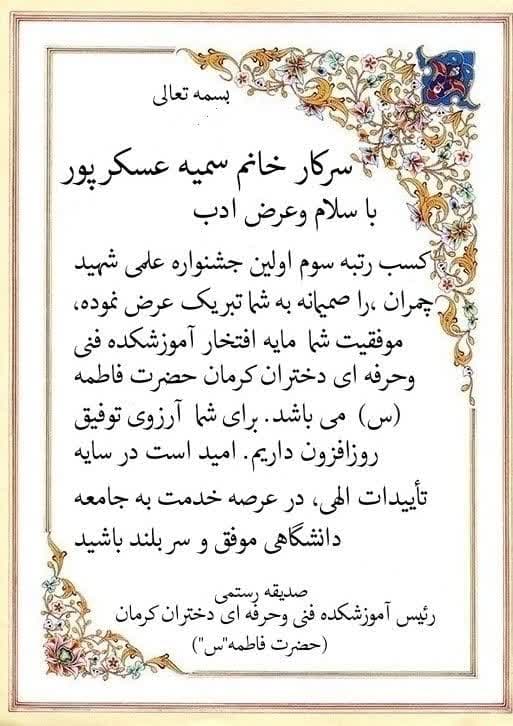 بسمه تعالی
سرکار خانم سمیه عسکرپور
با سلام وعرض ادب
کسب رتبه سوم اولین جشنواره علمی شهید
چمران ،را صمیمانه به شما تبریک عرض نموده،
موفقیت شما مایه افتخار آموزشکده فنی
وحرفه ای دختران کرمان حضرت فاطمه
(س) می باشد. برای شما آرزوی توفیق
روزافزون داریم. امید است در سایه
تأییدات الهی، در عرصه خدمت به جامعه
دانشگاهی موفق و سربلند باشید
صدیقه رستمی
رئیس آموزشکده فنی وحرفه ای دختران کرمان
(حضرت فاطمه"س")